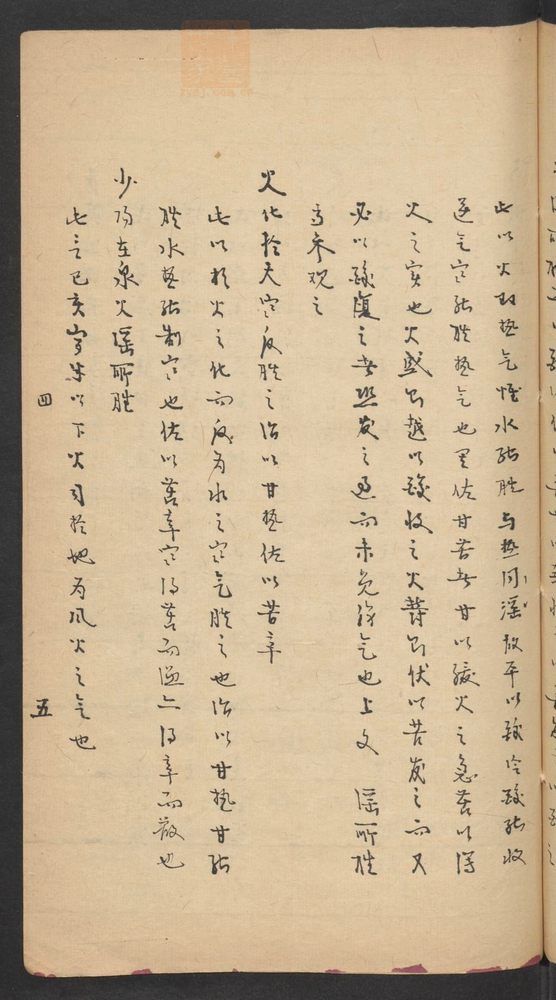 此以火斟热气惟水能胜与热同淫故平以酸冷酸能收
逆气寒能胜热气也更佐甘苦者甘以缓火之急苦以泻
火之实也火盛则越以酸收之火郁则伏以苦发之而又
必以酸复之者恐发之过而未免伤气也上文 淫所胜
当参观之
火化於天寒反胜之治以甘热佐以苦辛
此以于火之化而反为水之寒气胜之也治以甘热甘能
胜水热能制寒也佐以苦辛寒得苦而温亦得辛而散也
少阳在泉火淫所胜
此言巳亥岁半以下火司於地为风火之气也
四
五